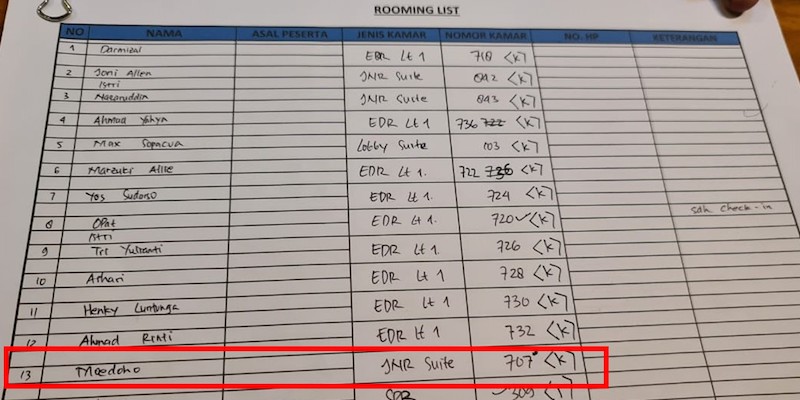 ROOMING LIST
NO NAMA ASAL PESERTA JENIS KAMAR NOMOR KAMAR NO. HP KETERANGAN
1 Darmizal EDR Lt 1 710 <K7
2 Joni Allen JNR Suite 042 <K7
Istri
3 Nazaruddin JNR Suite 043 <K7
4 Ahmad Yahya EDR Lt 1 736 722 <K7
5 Max Sopacua Lobby Suite 103 <K7
6 Marzuki Alie EDR Lt 1. 722 736 <K7
7 Yos Sudarso EDR Lt 1. 724 <K7
8 Opat EDR Lt 1. 720 <K7 sdh check-in
Istri
9 Tri Yulianti EDR Lt 1. 726 <K7
10 Azhari EDR Lt 1 728 <K7
11 Henky Luntungan EDR Lt 1 730 <K7
12 Ahmad EDR Lt 1 732 <K7
13 Moeldoko JNR Suite 707 <K7
309